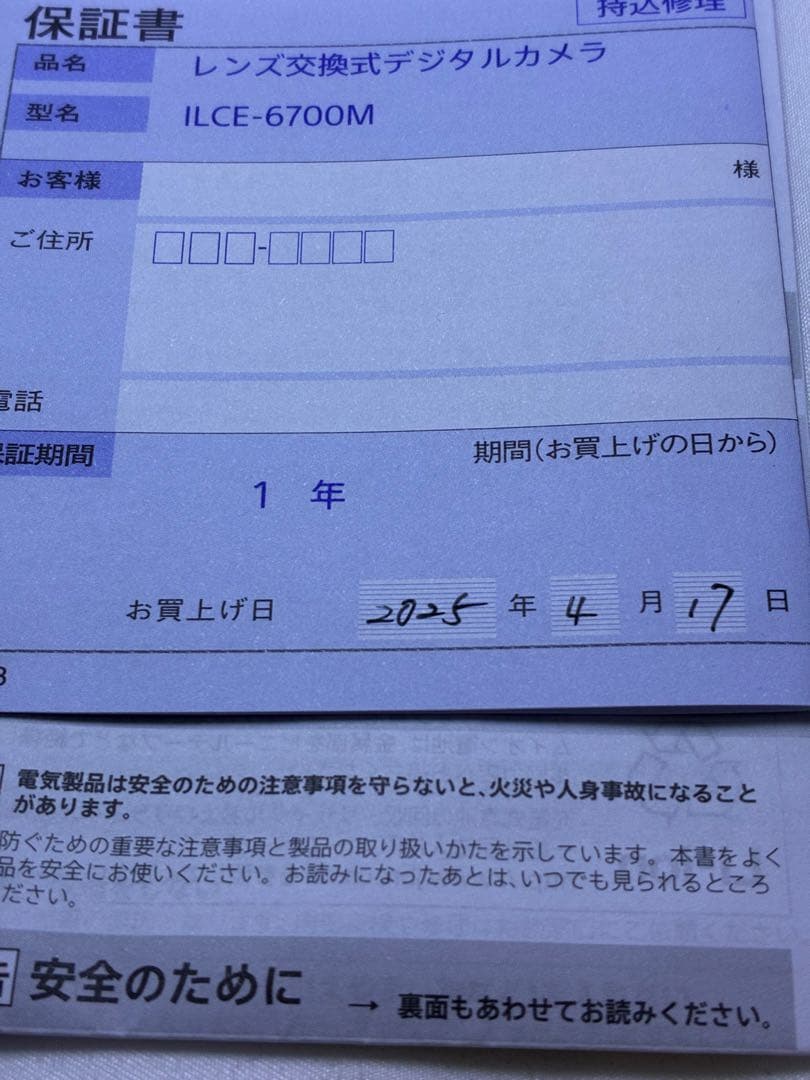 保証書
持込修理
品名 レンズ交換式デジタルカメラ
型名 ILCE-6700M
お客様 様
ご住所 □□□-□□□□
電話
保証期間 期間(お買上げの日から)
1 年
お買上げ日 2025 年 4 月 17 日
電気製品は安全のための注意事項を守らないと、火災や人身事故になること
があります。
防ぐための重要な注意事項と製品の取り扱いかたを示しています。本書をよく
品を安全にお使いください。お読みになったあとは、いつでも見られるところ
ださい。
安全のために → 裏面もあわせてお読みください。